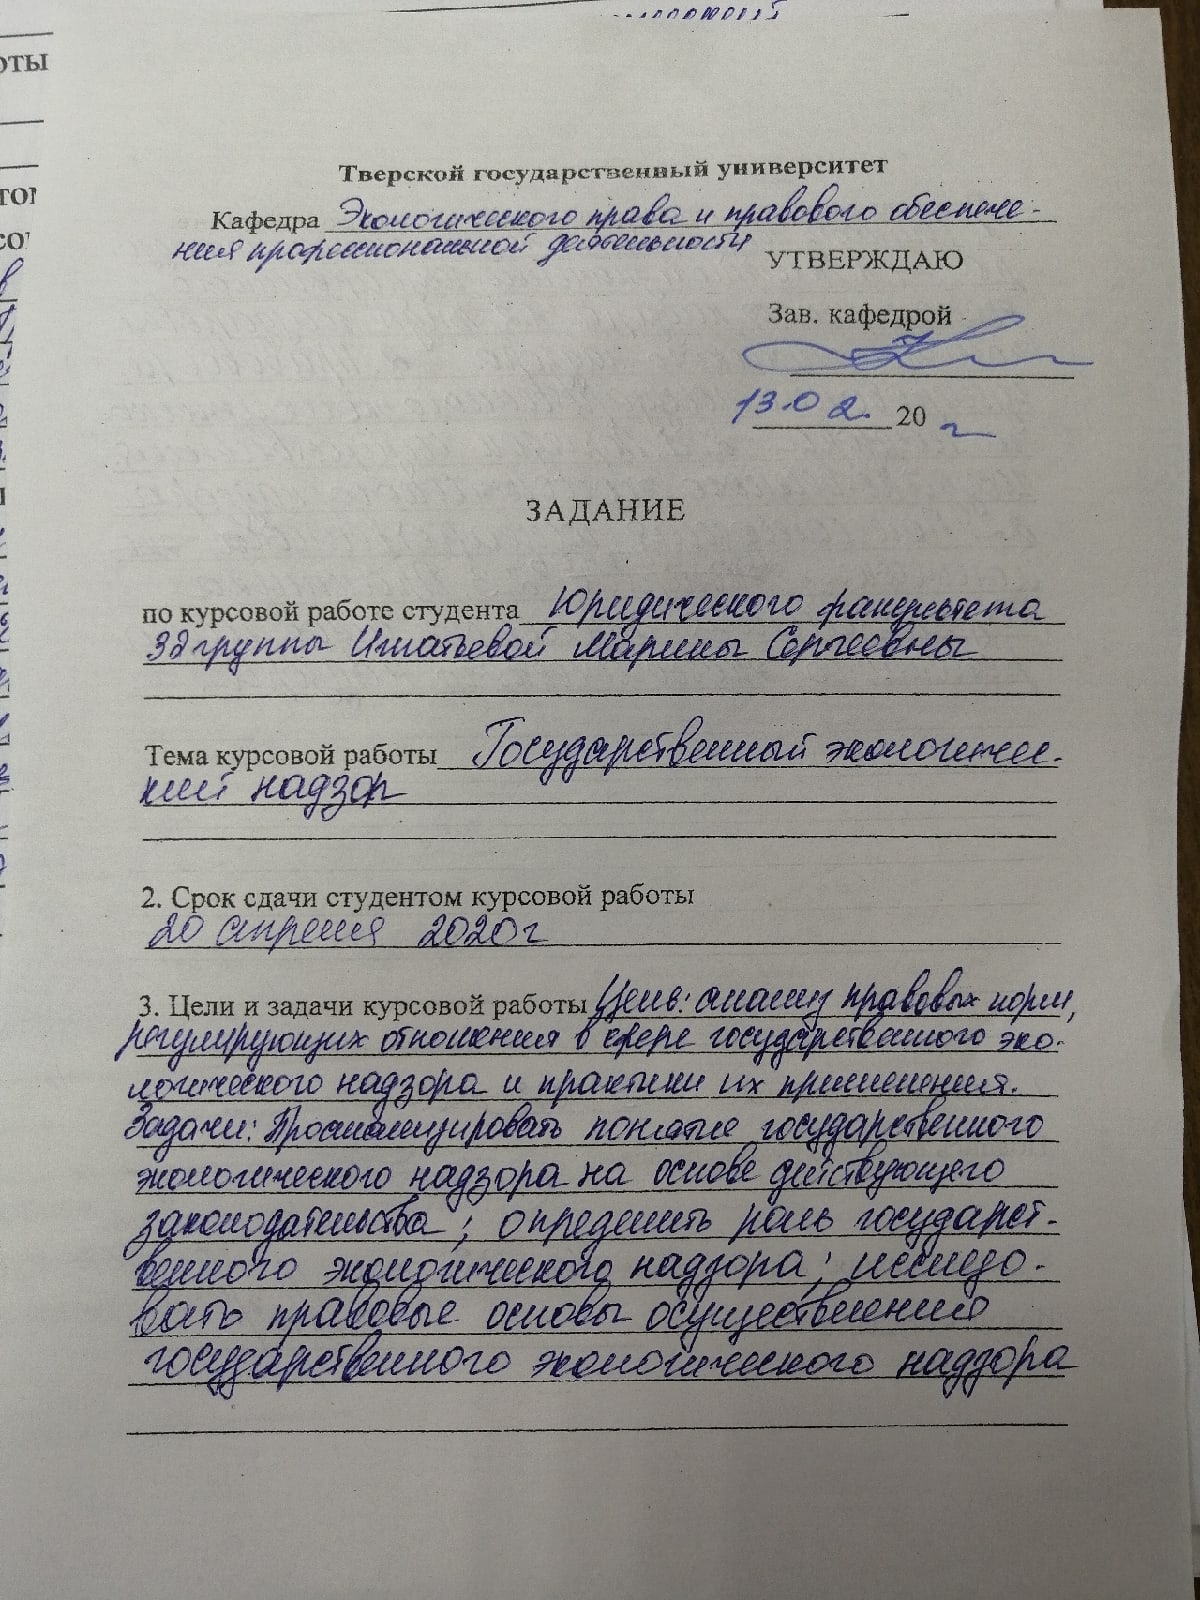 ОТЫ
Тверской государственный университет
Кафедра Экологического права и правового обеспече-
ния профессиональной деятельности
УТВЕРЖДАЮ
Зав. кафедрой
13.02. 20 г
ЗАДАНИЕ
по курсовой работе студента Юридического факультета
группы Игнатьевой Марины Сергеевны
Тема курсовой работы Государственный экологичес-
кий надзор
2. Срок сдачи студентом курсовой работы
20 апреля 2020г
3. Цели и задачи курсовой работы Цель: анализ правовых норм,
регулирующих отношения в сфере государственного эко-
логического надзора и практики их применения.
Задачи: Проанализировать понятие государственного
экологического надзора на основе действующего
законодательства; определить роль государст-
венного экологического надзора; исследо-
вать правовые основы осуществления
государственного экологического надзора